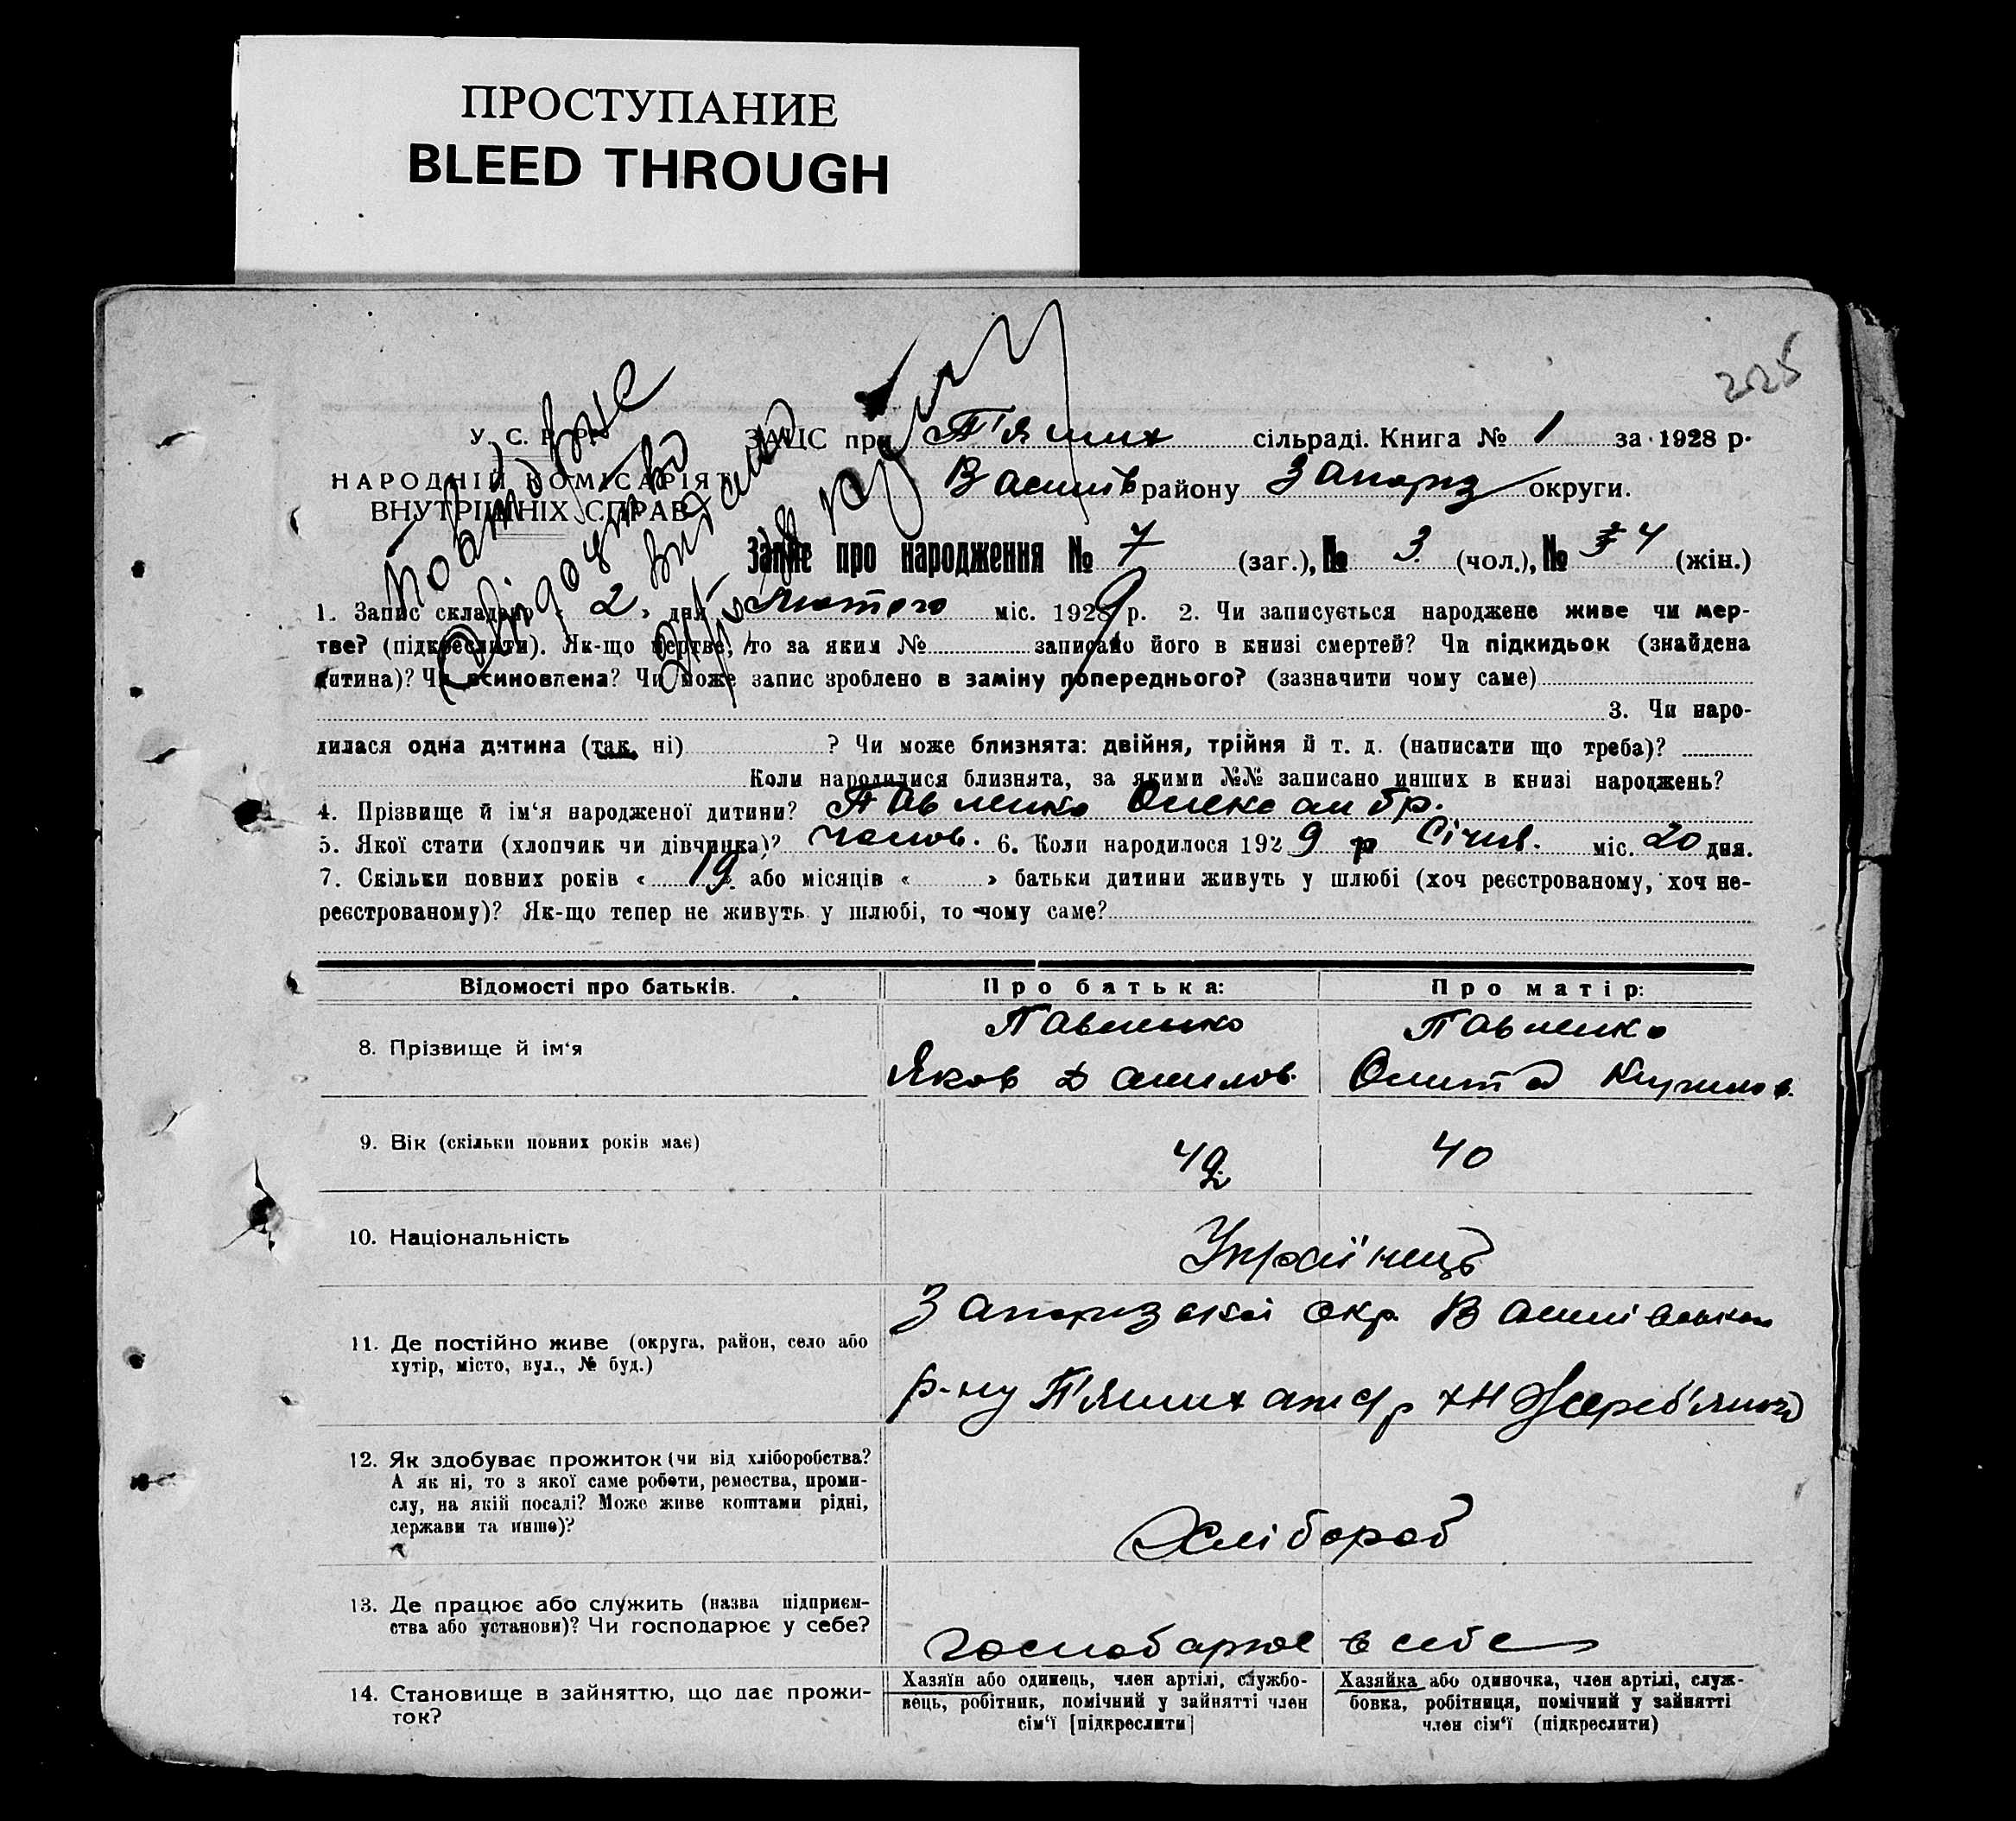 ПРОСТУПАНИЕ
BLEED THROUGH
225
У. С. Р. Р.
НАРОДНІЙ КОМІСАРІЯТ
ВНУТРІШНІХ СПРАВ
Повторне
свідоцтво
видано
ЗАПИС при П'яших сільраді. Книга № 1 за 1928 р.
Василів району Запоріз округи.
Запис про народження № 7 (заг.), № 3 (чол.), № 4 (жін.)
1. Запис складено « 2 » дня лютого міс. 1929 р. 2. Чи записується народжене живе чи мер-
тве? (підкреслити). Як-що мертве, то за яким № записано його в книзі смертей? Чи підкидьок (знайдена
дитина)? Чи всиновлена? Чи може запис зроблено в заміну попереднього? (зазначити чому саме)
3. Чи наро-
дилася одна дитина (так, ні) ? Чи може близнята: двійня, трійня й т. д. (написати що треба)?
Коли народилися близнята, за якими №№ записано инших в книзі народжень?
4. Прізвище й ім‘я народженої дитини? Павленко Олександр.
5. Якої стати (хлопчик чи дівчинка)? чолов. 6. Коли народилося 1929 р Січня. міс. 20 дня.
7. Скільки повних років « 19 » або місяців « » батьки дитини живуть у шлюбі (хоч реєстрованому, хоч не-
реєстрованому)? Як-що тепер не живуть у шлюбі, то чому саме?
Відомості про батьків. Про батька: Про матір:
8. Прізвище й ім‘я Павленко Яков Данилов. Павленко Кирилов.
9. Вік (скільки повних років має) 42 40
10. Національність Українець
11. Де постійно живе (округа, район, село або
хутір, місто, вул., № буд.) Запорізької окр. Василівськог
р-ну П'яших с/р
12. Як здобуває прожиток (чи від хліборобства?
А як ні, то з якої саме роботи, ремества, проми-
слу, на якій посаді? Може живе коштами рідні,
держави та инше)? Хлібороб
13. Де працює або служить (назва підприєм-
ства або установи)? Чи господарює у себе? господарює в себе
14. Становище в зайняттю, що дає прожи-
ток?
Хазяїн або одинець, член артілі, службо-
вець, робітник, помічний у зайнятті член
сім‘ї [підкреслити]
Хазяйка або одиночка, член артілі, служ-
бовка, робітниця, помічний у зайнятті
член сім‘ї (підкреслити)